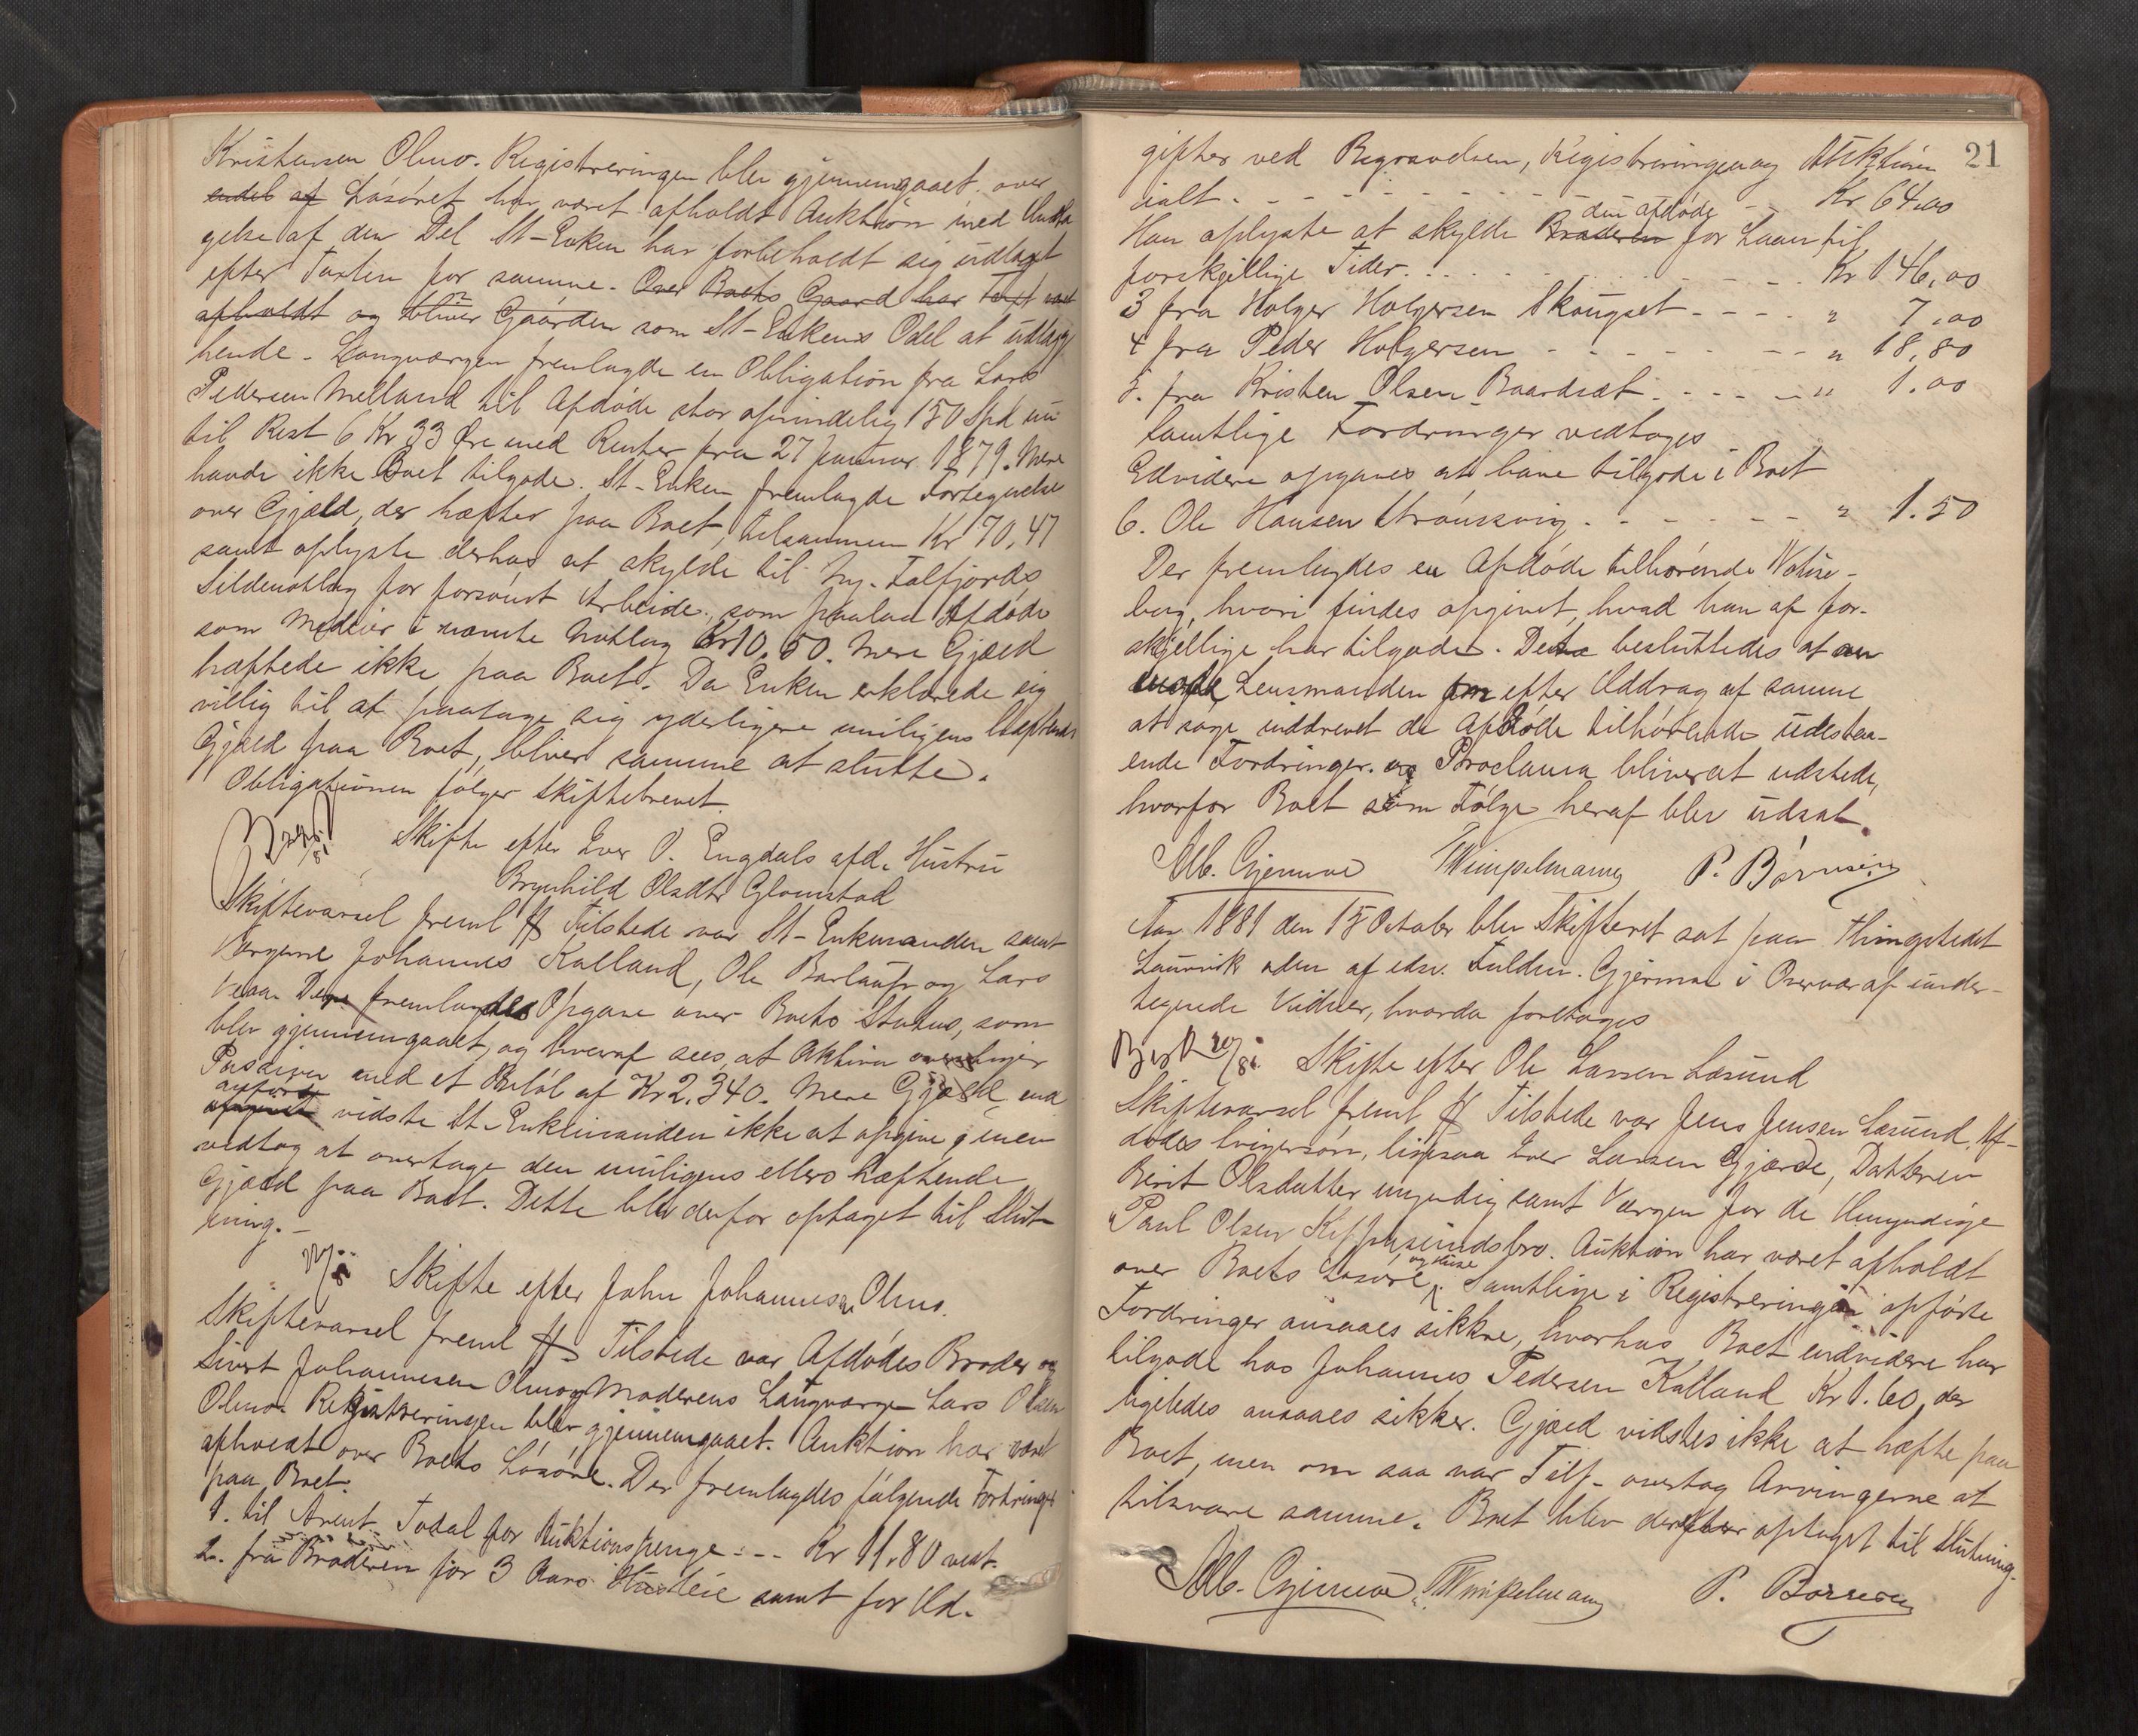 Kristensen Olmo. Registreringen blev gjennemgaaet. over
endel af Løsøret har været afholdt Auktion med Undta
gelse af den Del St-Enken har forbeholdt sig udlagt
efter Taxten for samme. Over Boets Gaard har Taxt været
afholdt og bliver Gaarden som St-Enkens Odel at udlægg
hende. Laugværgen fremlagde en Obligation fra Lars
Pedersen Melland til Afdøde stor oprindelig 150 Spd nu
til Rest 6 Kr 33 Øre med Renter fra 27 Januar 1879. Mere
havde ikke Boet tilgode. St-Enken fremlagde Fortegnelse
over Gjæld, der hæfter paa Boet, tilsammen Kr 70.47
samt oplyste derhos at skylde til Ny-Talfjords
Sildenotlag for forsømt Arbeide, som paalaa Afdøde
som Medeier i nævnte Notlag Kr 10.50. Mere Gjæld
hæftede ikke paa Boet. Da Enken erklærede sig
villig til at paatage sig yderligere muligens hæftende
Gjæld paa Boet, bliver samme at slutte.
Obligationen følger Skiftebrevet.
Skifte efter Iver O. Engdals afd. Hustru
Brynhild Olsdtr Glomstad
Skiftevarsel freml # Tilstede var St-Enkemanden samt
Værgerne Johannes Kalland, Ole Barlaup og Lars
Veaa. Der fremlagdes Opgave over Boets Status, som
blev gjennemgaaet, og hvoraf sees, at Aktiva overstiger
Passiva med et Beløb af Kr 2.340. Mere Gjæld end
anført
opgivet vidste St-Enkemanden ikke at opgive, men
vedtog at overtage den muligens ellers hæftende
Gjæld paa Boet. Dette blev derfor optaget til Slut-
ning.-
Skifte efter John Johannesen Olmo.
Skiftevarsel freml # Tilstede var Afdødes Broder og
Sivert Johannesen Olmo og Moderens Laugværge Lars Olsen
Olmo. Registreringen blev gjennemgaaet. Auktion har været
afholdt over Boets Løsøre. Der fremlagdes følgende Fordringer
paa Boet.
1. til Arent Todal for Auktionspenge --- Kr 11.80 vedt.
2. fra Broderen for 3 Aars Husleie samt for Ud-
21
gifter ved Begravelsen, Registreringen og Auktionen
ialt. - - - - - - Kr 64.00
den afdøde
Han oplyste at skylde Broderen for Laan til
forskjellige Tider. - - - - - Kr 146,00
3 fra Holger Holgersen Skougset - - - - " 7.00
4 fra Peder Holgersen - - - - - - " 18,80
5. fra Kristen Olsen Baardsæt - - - - " 1.00
Samtlige Fordringer vedtoges
Endvidere opgaves at have tilgode i Boet
6. Ole Hansen Strømsvig - - - - - " 1.50
Der fremlagdes en Afdøde tilhørende Notise-
bog, hvori findes opgivet, hvad han af for-
skjellige har tilgode. Dette besluttedes at an
mode Lensmanden om efter Uddrag af samme
at søge inddrevet de Afdøde tilhørende udestaa-
ende Fordringer. og Proclama bliver at udstede,
hvorfor Boet som Følge heraf blev udsat.
Alb. Gjermoe TWimpelmann P. Børnsen
Aar 1881 den 15 October blev Skifteret sat paa Thingstedet
Laurvik aden af edsv. Fuldm. Gjermoe i Overvær af under-
tegnede Vidner, hvorda foretoges
Skifte efter Ole Larsen Læsund
Skiftevarsel freml # Tilstede var Jens Jensen Læsund, Af-
dødes Svigersøn, ligesaa Iver Larsen Gjærde, Datteren
Berit Olsdatter umyndig samt Værgen for de Umyndige
Paul Olsen Kippersundsbro. Auktion har været afholdt
over Boets Løsøre. Samtlige i Registreringen opførte
Fordringer ansaaes sikkre, hvorhos Boet endvidere har
tilgode hos Johannes Pedersen Kalland Kr 1.60, der
ligeledes ansaaes sikker. Gjæld vidstes ikke at hæfte paa
Boet, men om saa var Tilf- overtog Arvingerne at
tilsvare samme. Boet blev derefter optaget til Slutning.
Alb. Gjermoe TWimpelmann P. Børnsen